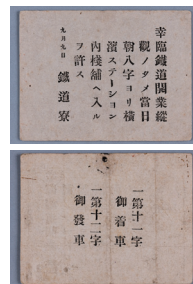 幸臨鐵道開業縱
觀ノタメ當日
朝八字ヨリ横
濱ステーション
內棧舖ヘ入ル
ヲ許ス
九月九日
鐵道寮
一第十一字
御着車
一第十二字
御發車